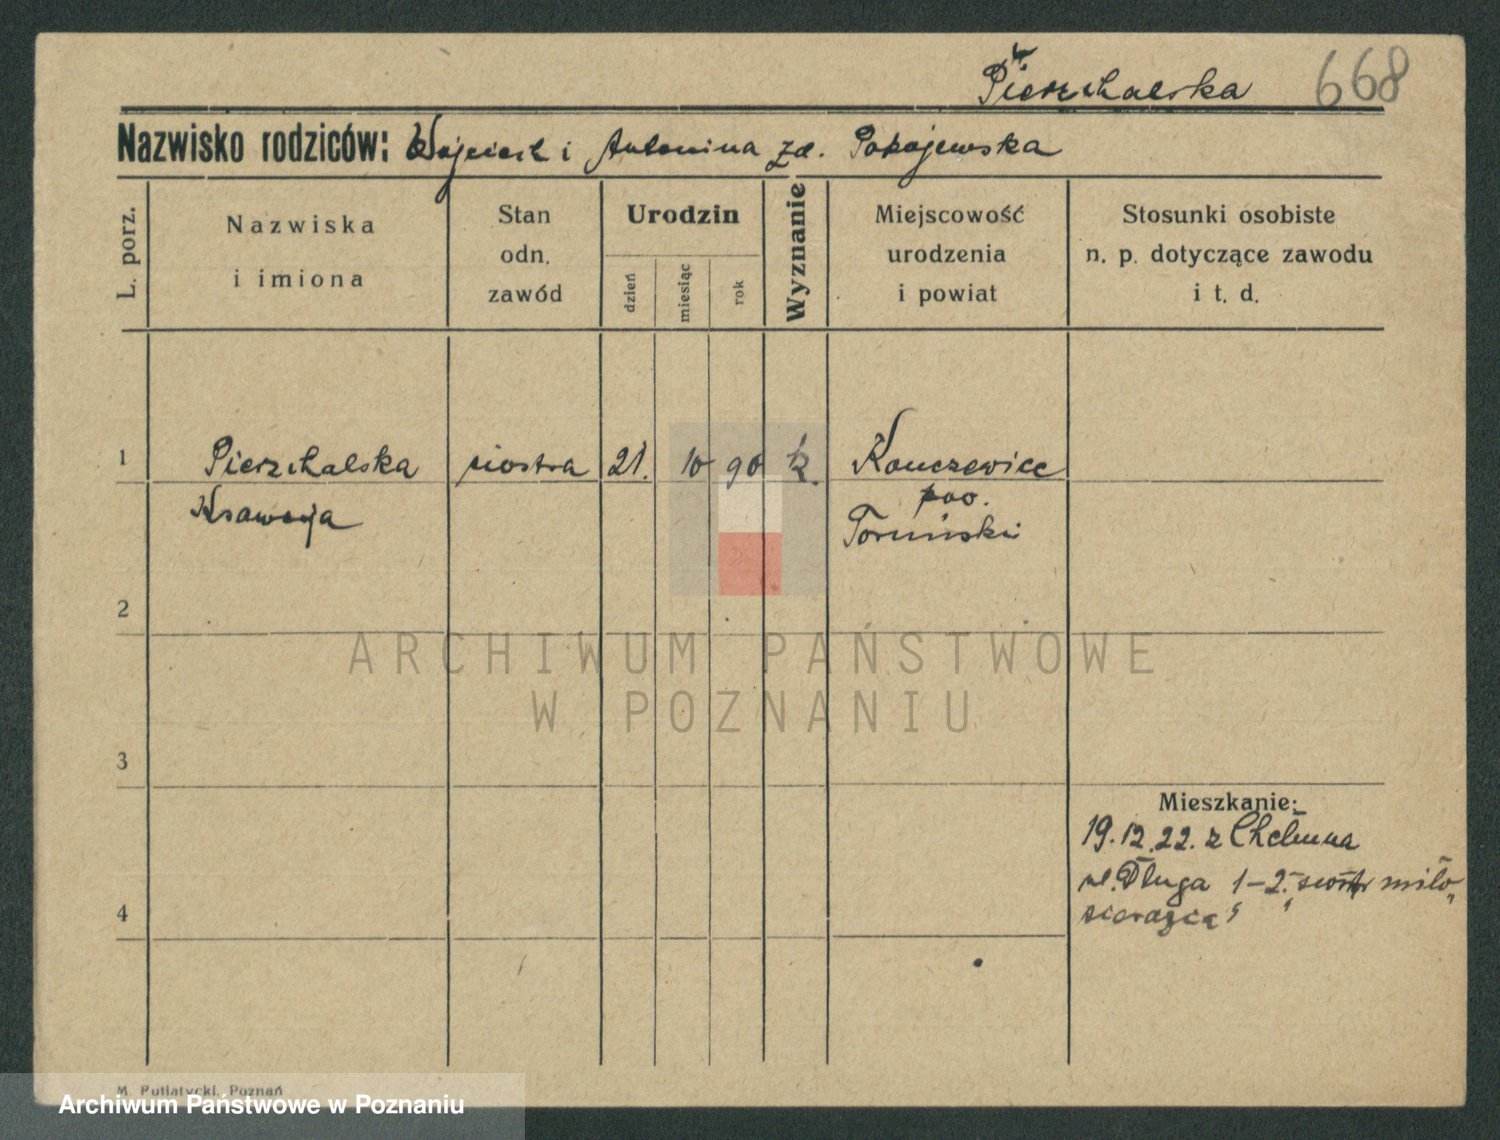 Pierzchalska 668
Nazwisko rodziców: Wojciech i Antonina zd. Pokojewska
L. porz.
Nazwiska
i imiona
Stan
odn.
zawód
Urodzin
dzień
miesiąc
rok
Wyznanie
Miejscowość
urodzenia
i powiat
Stosunki osobiste
n. p. dotyczące zawodu
i t. d.
1 Pierzchalska siostra 21. 10 90 k. Konczewice
Ksawerja pow.
Toruński
2
ARCHIWUM PAŃSTWOWE
W POZNANIU
3
Mieszkanie:
19.12.22. z Chełmna
ul. Długa 1-2. siostr miło-
sierdzia
4
M. Putiatycki, Poznań
Archiwum Państwowe w Poznaniu